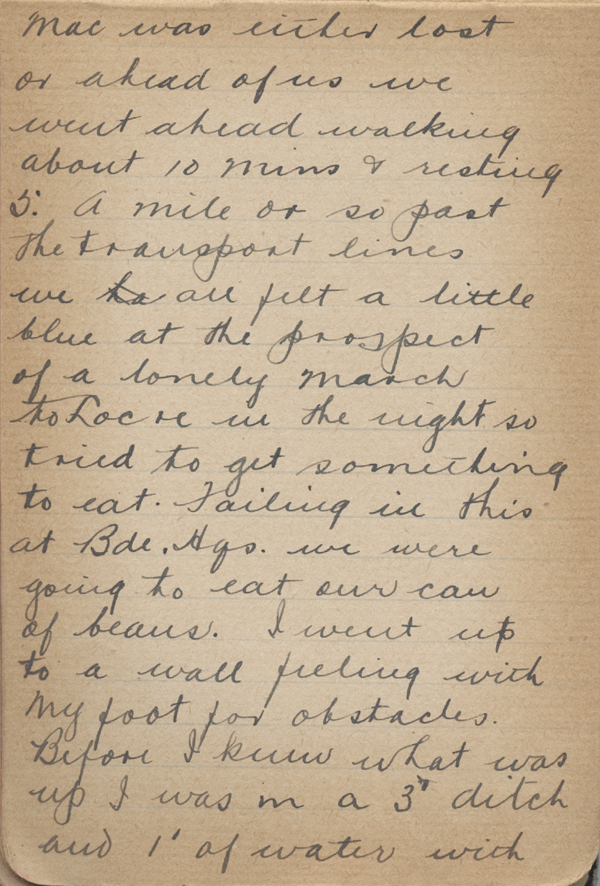 Mac was either lost
or ahead of us we
went ahead walking
about 10 mins & resting
5. A mile or so past
the transport lines
we ha all felt a little
blue at the prospect
of a lonely march
to Locre in the night so
tried to get something
to eat. Failing in this
at Bde. Hqs. we were
going to eat our can
of beans. I went up
to a wall feeling with
my foot for obstacles.
Before I knew what was
up I was in a 3' ditch
and 1' of water with